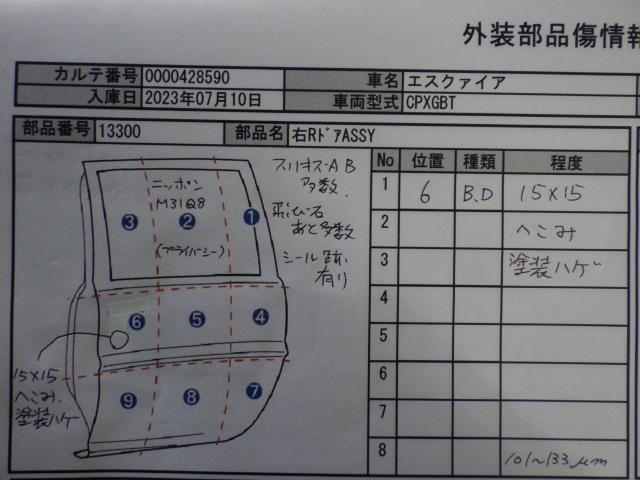 外装部品傷情報
カルテ番号 0000428590 車名 エスクァイア
入庫日 2023年07月10日 車両型式 CPXGBT
部品番号 13300 部品名 右RドアASSY
No 位置 種類 程度
1 6 B.D 15×15
2 へこみ
3 塗装ハゲ
4
5
6
7
8 101~133μm
ニッポン
M31Q8
(プライバシー)
3 2 1
6 5 4
9 8 7
AB
多数.
飛び石
あと多数
シール跡.
有り
15×15
へこみ.
塗装ハゲ